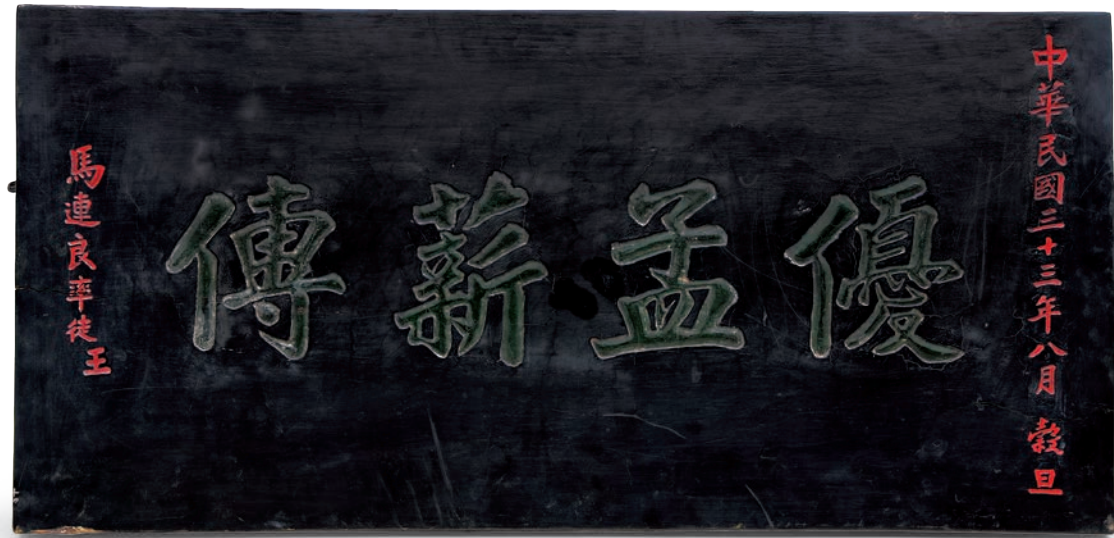 中華民國三十三年八月 穀旦
優孟薪傳
馬連良率徒王